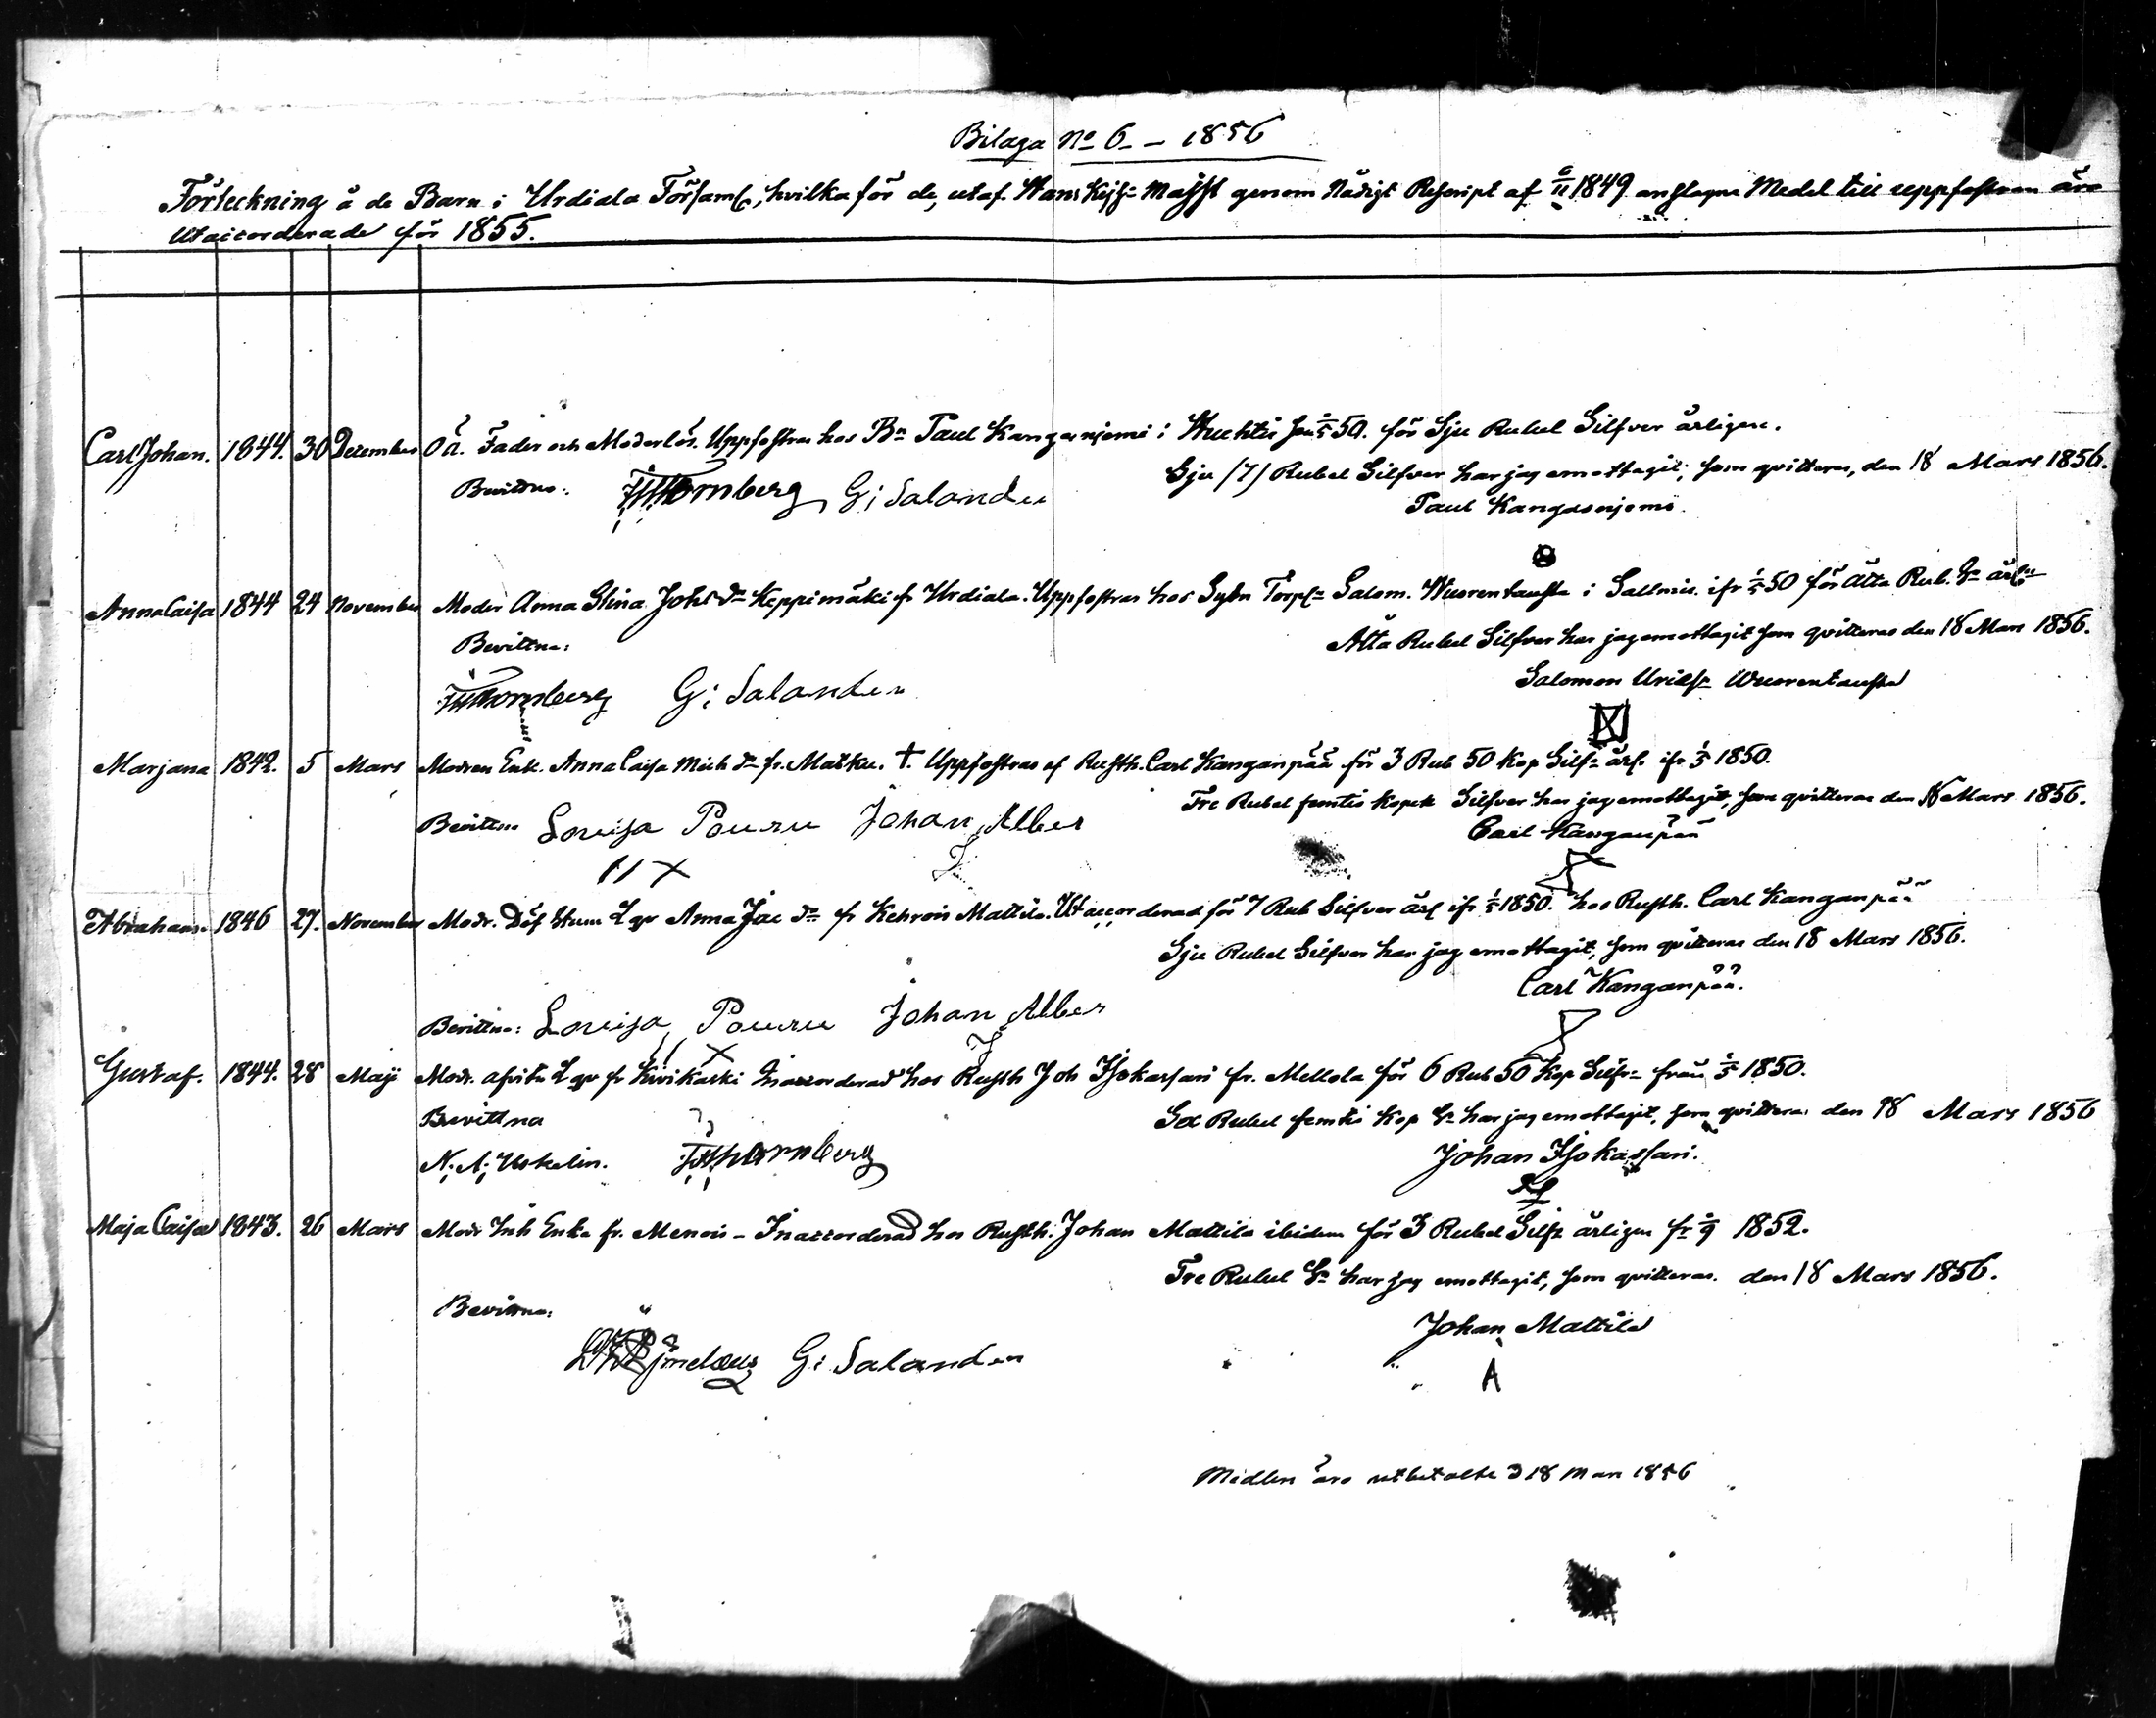 Bilaga No 6 - 1856
Förteckning å de Barn i Urdiala Församl, hvilka för de, utaf Hans Kejs. Majst genom Nådigt Rescript af 6/11 1849 anslagne Medel till uppfostran äro
Utaccorderade för 1855.
Carl Johan. 1844. 30 December Oä. Fader och Moderlös. Uppfostras hos Bn Paul Kangasnjemi i Huhtis 50. för Sju Rubel Silfver årligen.
Sju (7) Rubel Silfver har jag emottagit, som qvitteras, den 18 Mars 1856.
Bevittna: Thornberg G: Salander
Paul Kangasnjemi.
Anna Caisa 1844 24 November Moder Anna Stina Johsdr Keppimäki fr Urdiala. Uppfostras hos Torp. Salom. Wuorentausta i Salmis. ifr 1/5 50 för Åtta Rub. Sr årl
Bevittna:
Åtta Rubel Silfver har jag emottagit som qvitteras den 18 Mars 1856.
Salomon Wuorentausta
Thornberg G: Salander
Marjana 1842. 5 Mars Modren Enk. Anna Caisa Mich dr fr. Matku. † Uppfostras af Rusth. Carl Kanganpää för 3 Rub 50 Kop Silfr årl. ifr 1/5 1850.
Tre Rubel femtio Kopek Silfver har jag emottagit, som qvitteras den 18 Mars 1856.
Bevittna Lovisa Pouru Johan Alber
Carl Kanganpää
11 X
Abraham 1846 27. November Modr. Döf Stum Anna Jac dr fr Kehrois Mattila. Utaccorderad för 7 Rub Silfver årl ifr 1/5 1850. hos Rusth. Carl Kanganpää
Sju Rubel Silfver har jag emottagit, som qvitteras den 18 Mars 1856.
Carl Kanganpää.
Bevittna: Lovisa Pouru Johan Alber
11 X
Gustaf. 1844. 28 Maji Modr. afvitr fr Kivikaski Inaccorderad hos Rusth Joh Isokassari fr. Mellola för 6 Rub 50 Kop Silfr från 1/5 1850.
Bevittna
Sex Rubel femtio Kop Sr har jag emottagit, som qvitteras den 18 Mars 1856
N. A. Uskelin. Thornberg
Johan Isokassari.
Maja Caisa 1843. 26 Mars Modr Inh Enka fr. Menois - Inaccorderad hos Rusth. Johan Mattila ibidem för 3 Rubel Silfr årligen fr 9 1852.
Tre Rubel Sr har jag emottagit, som qvitteras. den 18 Mars 1856.
Bevittna:
Johan Mattila
G: Salander
A
Medlen äro utbetalte d 18 Mars 1856